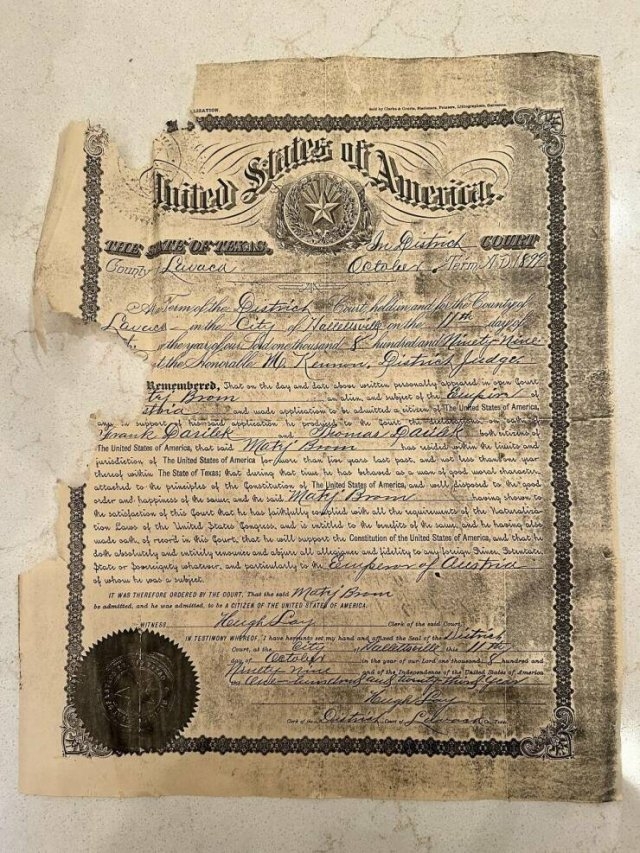 LIZATION.
Sold by Clarke & Courts, Stationers, Printers, Lithographers, Galveston.
United States of America.
THE STATE OF TEXAS,
In District COURT
County Lavaca
October Term A.D. 1899
Term of the District Court, holden and for the County of
Lavaca in the City of Hallettsville on the 11th day of
the year of our Lord one thousand 8 hundred and Ninety Nine
the Honorable M. Kennon, District Judge
Remembered, That on the day and date above written personally appeared in open Court
ty Brom an alien, and subject of the Emperor of
and made application to be admitted a citizen of The United States of America,
in support of his said application he produced to the Court the
Frank Darilek and Thomas Darilek both citizens of
The United States of America, that said Maty Brom has resided within the limits and
jurisdiction of The United States of America for more than five years last past, and not less than one year
thereof within The State of Texas; that during that time he has behaved as a man of good moral character,
attached to the principles of the Constitution of The United States of America, and well disposed to the good
order and happiness of the same; and the said Maty Brom having shown to
the satisfaction of this Court that he has faithfully complied with all the requirements of the Naturaliza-
tion Laws of the United States Congress, and is entitled to the benefits of the same, and he having also
made oath, of record in this Court, that he will support the Constitution of the United States of America, and that he
doth absolutely and entirely renounce and abjure all allegiance and fidelity to any foreign Prince, Potentate,
State or Sovereignty whatever, and particularly to the Emperor of Austria
of whom he was a subject.
IT WAS THEREFORE ORDERED BY THE COURT, That the said Maty Brom
be admitted, and he was admitted, to be A CITIZEN OF THE UNITED STATES OF AMERICA.
WITNESS, Hugh Lay Clerk of the said Court,
IN TESTIMONY WHEREOF, I have hereunto set my hand and affixed the Seal of the District
Court, at the City Hallettsville this 11th
day of October in the year of our Lord one thousand 8 hundred and
Ninety Nine and of the Independence of the United States of America
One hundred
Hugh Lay
Clerk of the District Court of Lavaca Co. Texas